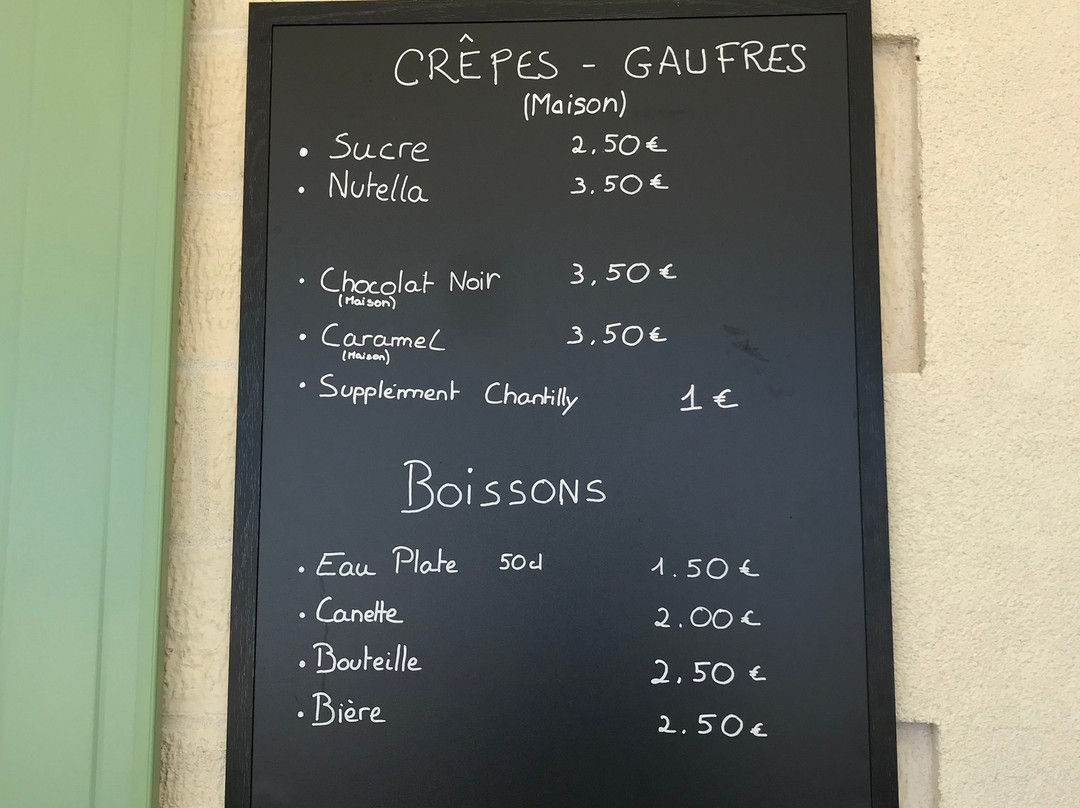 CRÊPES - GAUFRES
(Maison)
• Sucre 2,50 €
• Nutella 3.50 €
• Chocolat Noir 3,50 €
(Maison)
• Caramel 3.50 €
(Maison)
• Supplémment Chantilly 1 €
BOISSONS
• Eau Plate 50cl 1.50 €
• Canette 2.00 €
• Bouteille 2,50 €
• Bière 2.50 €